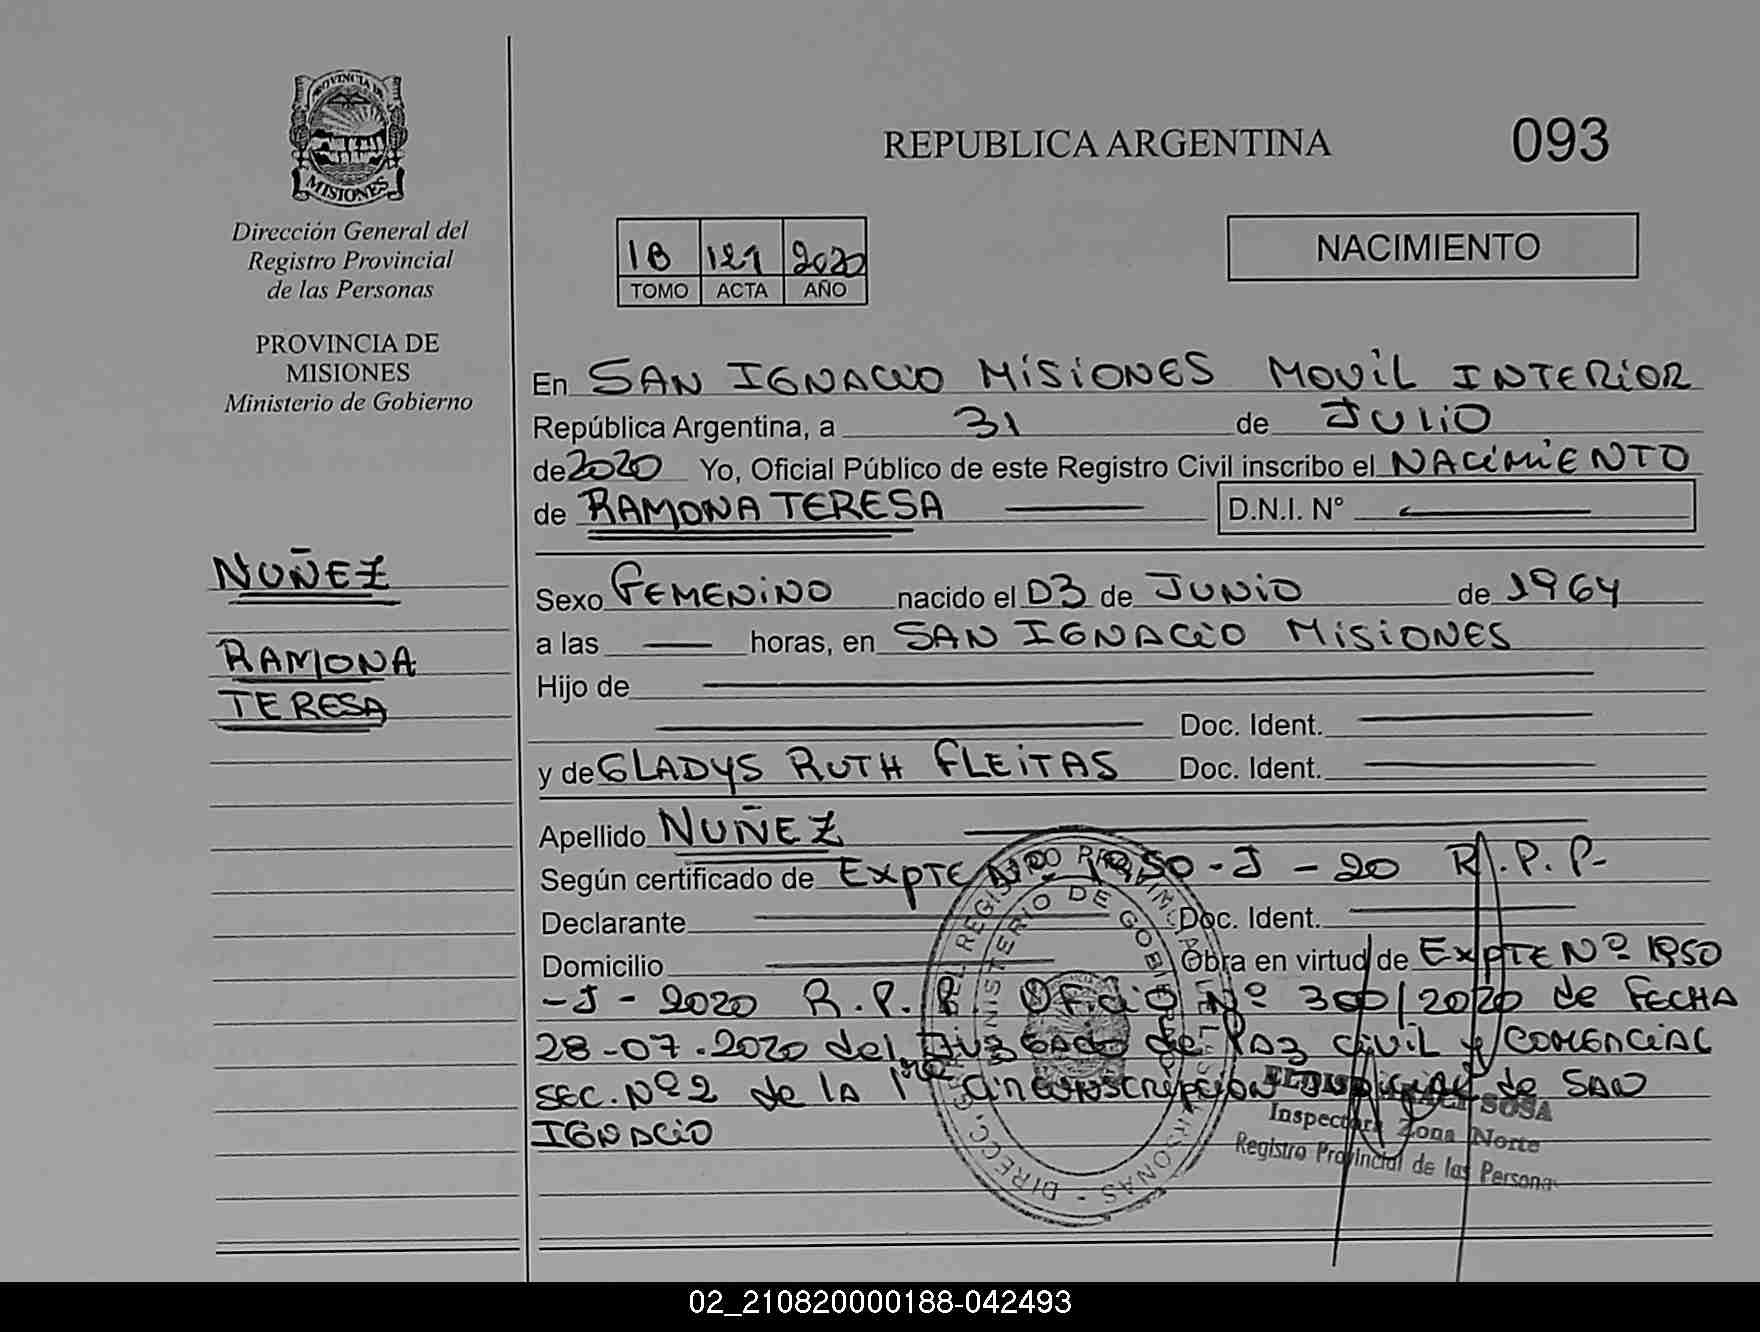 PROVINCIA DE
MISIONES
Dirección General del
Registro Provincial
de las Personas
PROVINCIA DE
MISIONES
Ministerio de Gobierno
NUÑEZ
RAMONA
TERESA
REPUBLICA ARGENTINA
093
1B 121 2020
TOMO ACTA AÑO
NACIMIENTO
En SAN IGNACIO MISIONES MOVIL INTERIOR
República Argentina, a 31 de JULIO
de 2020 Yo, Oficial Público de este Registro Civil inscribo el NACIMIENTO
de RAMONA TERESA D.N.I. Nº
Sexo FEMENINO nacido el 03 de JUNIO de 1964
a las horas, en SAN IGNACIO MISIONES
Hijo de
Doc. Ident.
y de GLADYS RUTH FLEITAS Doc. Ident.
Apellido NUÑEZ
Según certificado de EXPTE Nº 1950-J-20 R.P.P.
Declarante Doc. Ident.
Domicilio Obra en virtud de EXPTE Nº 1950
-J-2020 R.P.P. Oficio Nº 300/2020 de FECHA
28-07-2020 del Juzgado de Paz Civil y COMERCIAL
SEC. Nº 2 de la 1ra Circunscripcion Judicial de SAN
IGNACIO
SOSA
Inspectora Zona Norte
Registro Provincial de las Personas
02_210820000188-042493